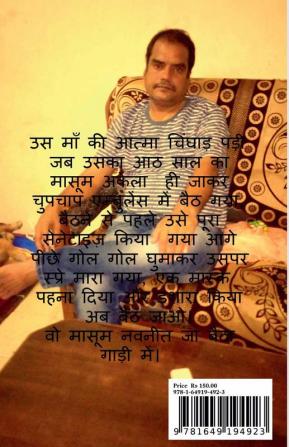 उस माँ की आत्मा चिंघाड़ पड़ी
जब उसका आठ साल का
मासूम अकेला ही जाकर
चुपचाप एम्बुलेंस में बैठ गया
बैठने से पहले उसे पूरा
सेनेटाइज किया गया आगे
पीछे गोल गोल घुमाकर उसपर
स्प्रे मारा गया, एक मास्क
पहना दिया और इशारा किया
अब बैठ जाओ।
वो मासूम नवनीत जा बैठा
गाड़ी में।
Price Rs 150.00
978-1-64919-492-3
9 781649 194923